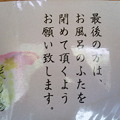 最後の方は、
お風呂のふたを
閉めて頂くよう
お願い致します。